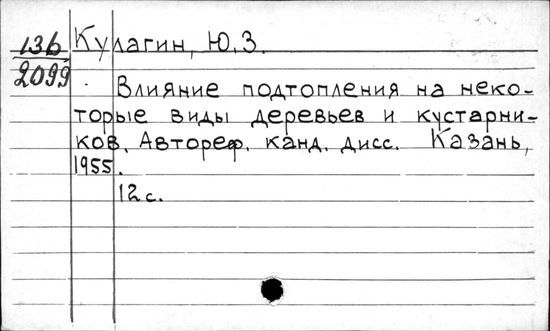 136 Кулагин, Ю.З.
2099
Влияние подтопления на неко-
торые виды деревьев и кустарни-
ков. Автореф. канд. дисс. Казань,
1955.
12 с.